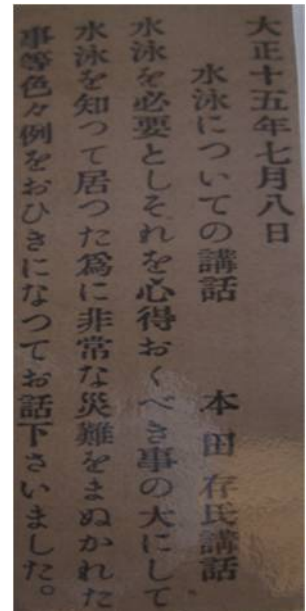 大正十五年七月八日
水泳についての講話 本田存氏講話
水泳を必要としそれを心得おくべき事の大にして
水泳を知つて居つた為に非常な災難をまぬかれた
事等色々例をおひきになつてお話下さいました。